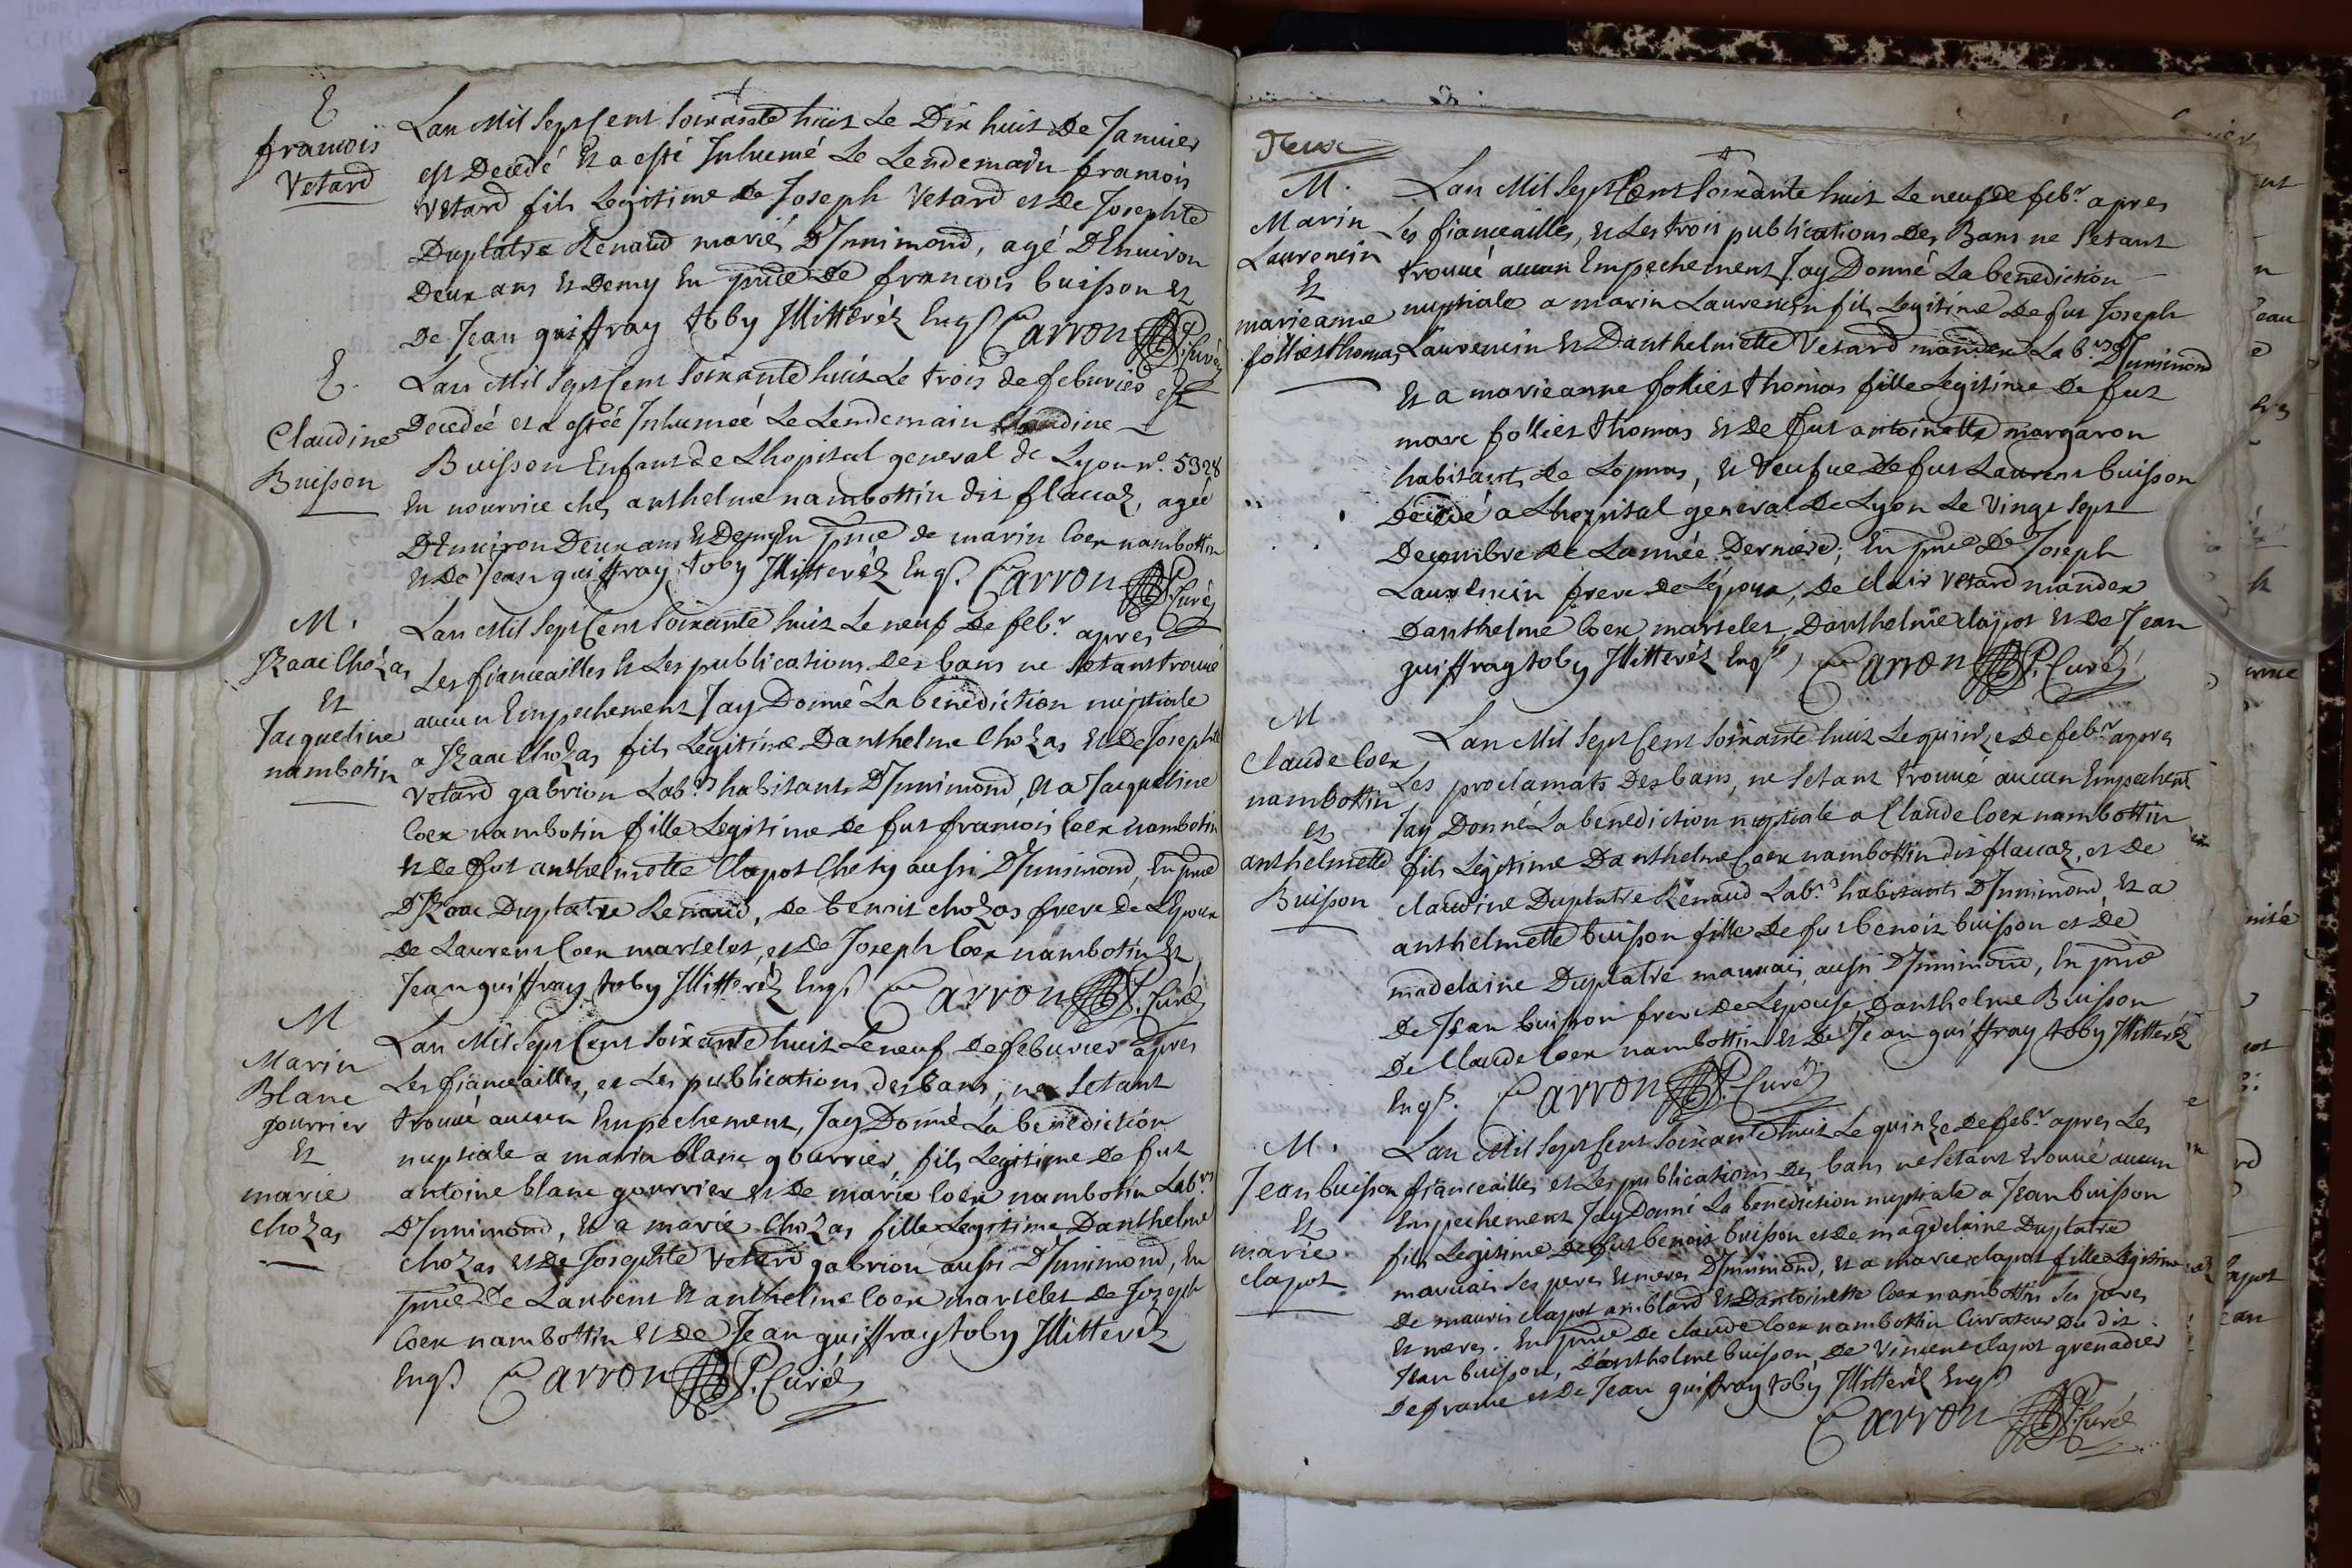 E
francois
Vetard
Lan Mil Sept Cent Soixante huit Le Dix huit De Janvier
est Decedé Et a esté Inhumé Le Lendemain francois
Vetard fils Legitime de Joseph Vetard et De Josephte
Duplatre Renaud mariés D'Innimond, agé D'Environ
Deux ans Et Demy En pnce De francois buisson Et
De Jean guiffray toby Illitterés Enqs Carron P. Curé
E.
Claudine
Buisson
Lan Mil Sept Cent Soixante huit Le trois de feburier est
Decedée et a estée Inhumée Le Lendemain Claudine
Buisson Enfant de Lhopital general de Lyon no. 5328
En nourrice ches anthelme nambottin dit flaccaz, agée
D'Environ Deux ans Et Demy En pnce de marin Coex nambottin
Et De Jean guiffray toby Illitterés Enqs. Carron P. Curé
M.
Izaac Chozas
Et
Jacqueline
nambotin
Lan Mil Sept Cent Soixante huit Le neuf De febr apres
Les fiancailles Et Les publications Des bans ne Setant trouvé
aucun Empechement Jay Donné La benediction nuptiale
a Izaac Chozas fils Legitime Danthelme Chozas Et De Josephte
Vetard gabrion Labrs habitants D'Innimond, Et a Jacqueline
Coex nambotin fille Legitime De fut francois Coex nambotin
Et De fut anthelmette Clapot Chety aussi D'Innimond, En pnce
D'Izaac Duplatre Renaud, De benoit chozas frere De Lepoux
De Laurent Coex marteles, et De Joseph Coex nambotin Et
Jean guiffray toby Illitterés Enqs Carron P. Curé
M
Marin
Blanc
gourrier
Et
marie
Chozas
Lan Mil Sept Cent Soixante huit Le neuf De feburier apres
Les fiancailles, et Les publications des bans, ne Setant
trouvé aucun Empechement, Jay Donné La benediction
nuptiale a marin blanc gourrier, fils Legitime De fut
antoine blanc gourrier Et De marie Coex nambotin Labrs
D'Innimond, Et a marie Chozas fille Legitime Danthelme
chozas Et De Josephte Vetard gabrion aussi D'Innimond, En
pnce De Laurent Et anthelme Coex marteles De Jozeph
Coex nambottin Et De Jean guiffray toby Illitterés
Enqs Carron P. Curé
Deux
M.
Marin
Laurencin
Et
marieanne
folliet thomas
Lan Mil Sept Cent Soixante huit Le neuf de febr apres
Les fiancailles, Et Les trois publications Des Bans ne Setant
trouvé aucun Empechement Jay Donné La benediction
nuptiale a marin Laurencin fils Legitime De fut Joseph
Laurencin Et Danthelmette Vetard mandex Labrs D'Innimond
Et a marieanne folliet thomas fille Legitime De fut
marc folliet thomas Et De fut antoinette margaron
habitants De Lopnas, Et Veufue De fut Laurent buisson
Decedé a Lhopital general De Lyon Le Vingt Sept
Decembre De Lannée Derniere; En pnce De Joseph
Laurencin frere de Lépoux, De clair Vetard mandex
Danthelme Coex marteles, Danthelme clapot Et De Jean
guiffray toby Illitterés Enqs Carron P. Curé
M
Claude Coex
nambottin
Et
anthelmette
Buisson
Lan Mil Sept Cent Soixante huit Le quinze De febr apres
Les proclamats Des bans, ne Setant trouvé aucun Empechemt
Jay Donné La benediction nuptiale a Claude Coex nambottin
fils Légitime Danthelme Coex nambottin dit flaccaz, et De
claudine Duplatre Renaud Labrs habitants D'Innimond, Et a
anthelmette buisson fille De fut benoit buisson et De
madelaine Duplatre mauvais aussi D'Innimond, En pnce
De Jean buisson frere De Lepouse, Danthelme Buisson
De Claude Coex nambottin Et De Jean guiffray toby Illitterés
Enqs. Carron P. Curé
M.
Jean buisson
Et
marie
clapot
Lan Mil Sept Cent Soixante huit Le quinze De febr apres Les
fiancailles et Les publications Des bans ne Setant trouvé aucun
Empechement Jay Donné La benediction nuptiale a Jean buisson
fils Legitime De fut benoit buisson et De magdelaine Duplatre
mauvais Ses peres Et meres D'Innimond, Et a marie clapot fille Legitime
De mauris clapot amblard Et Dantoinette Coex nambottin Ses peres
Et meres. En pnce De claude Coex nambottin Curateur Du dit
Jean buisson, Danthelme buisson, De Vincent clapot grenadier
De france et De Jean guiffray toby Illitterés Enqs
Carron P. Curé